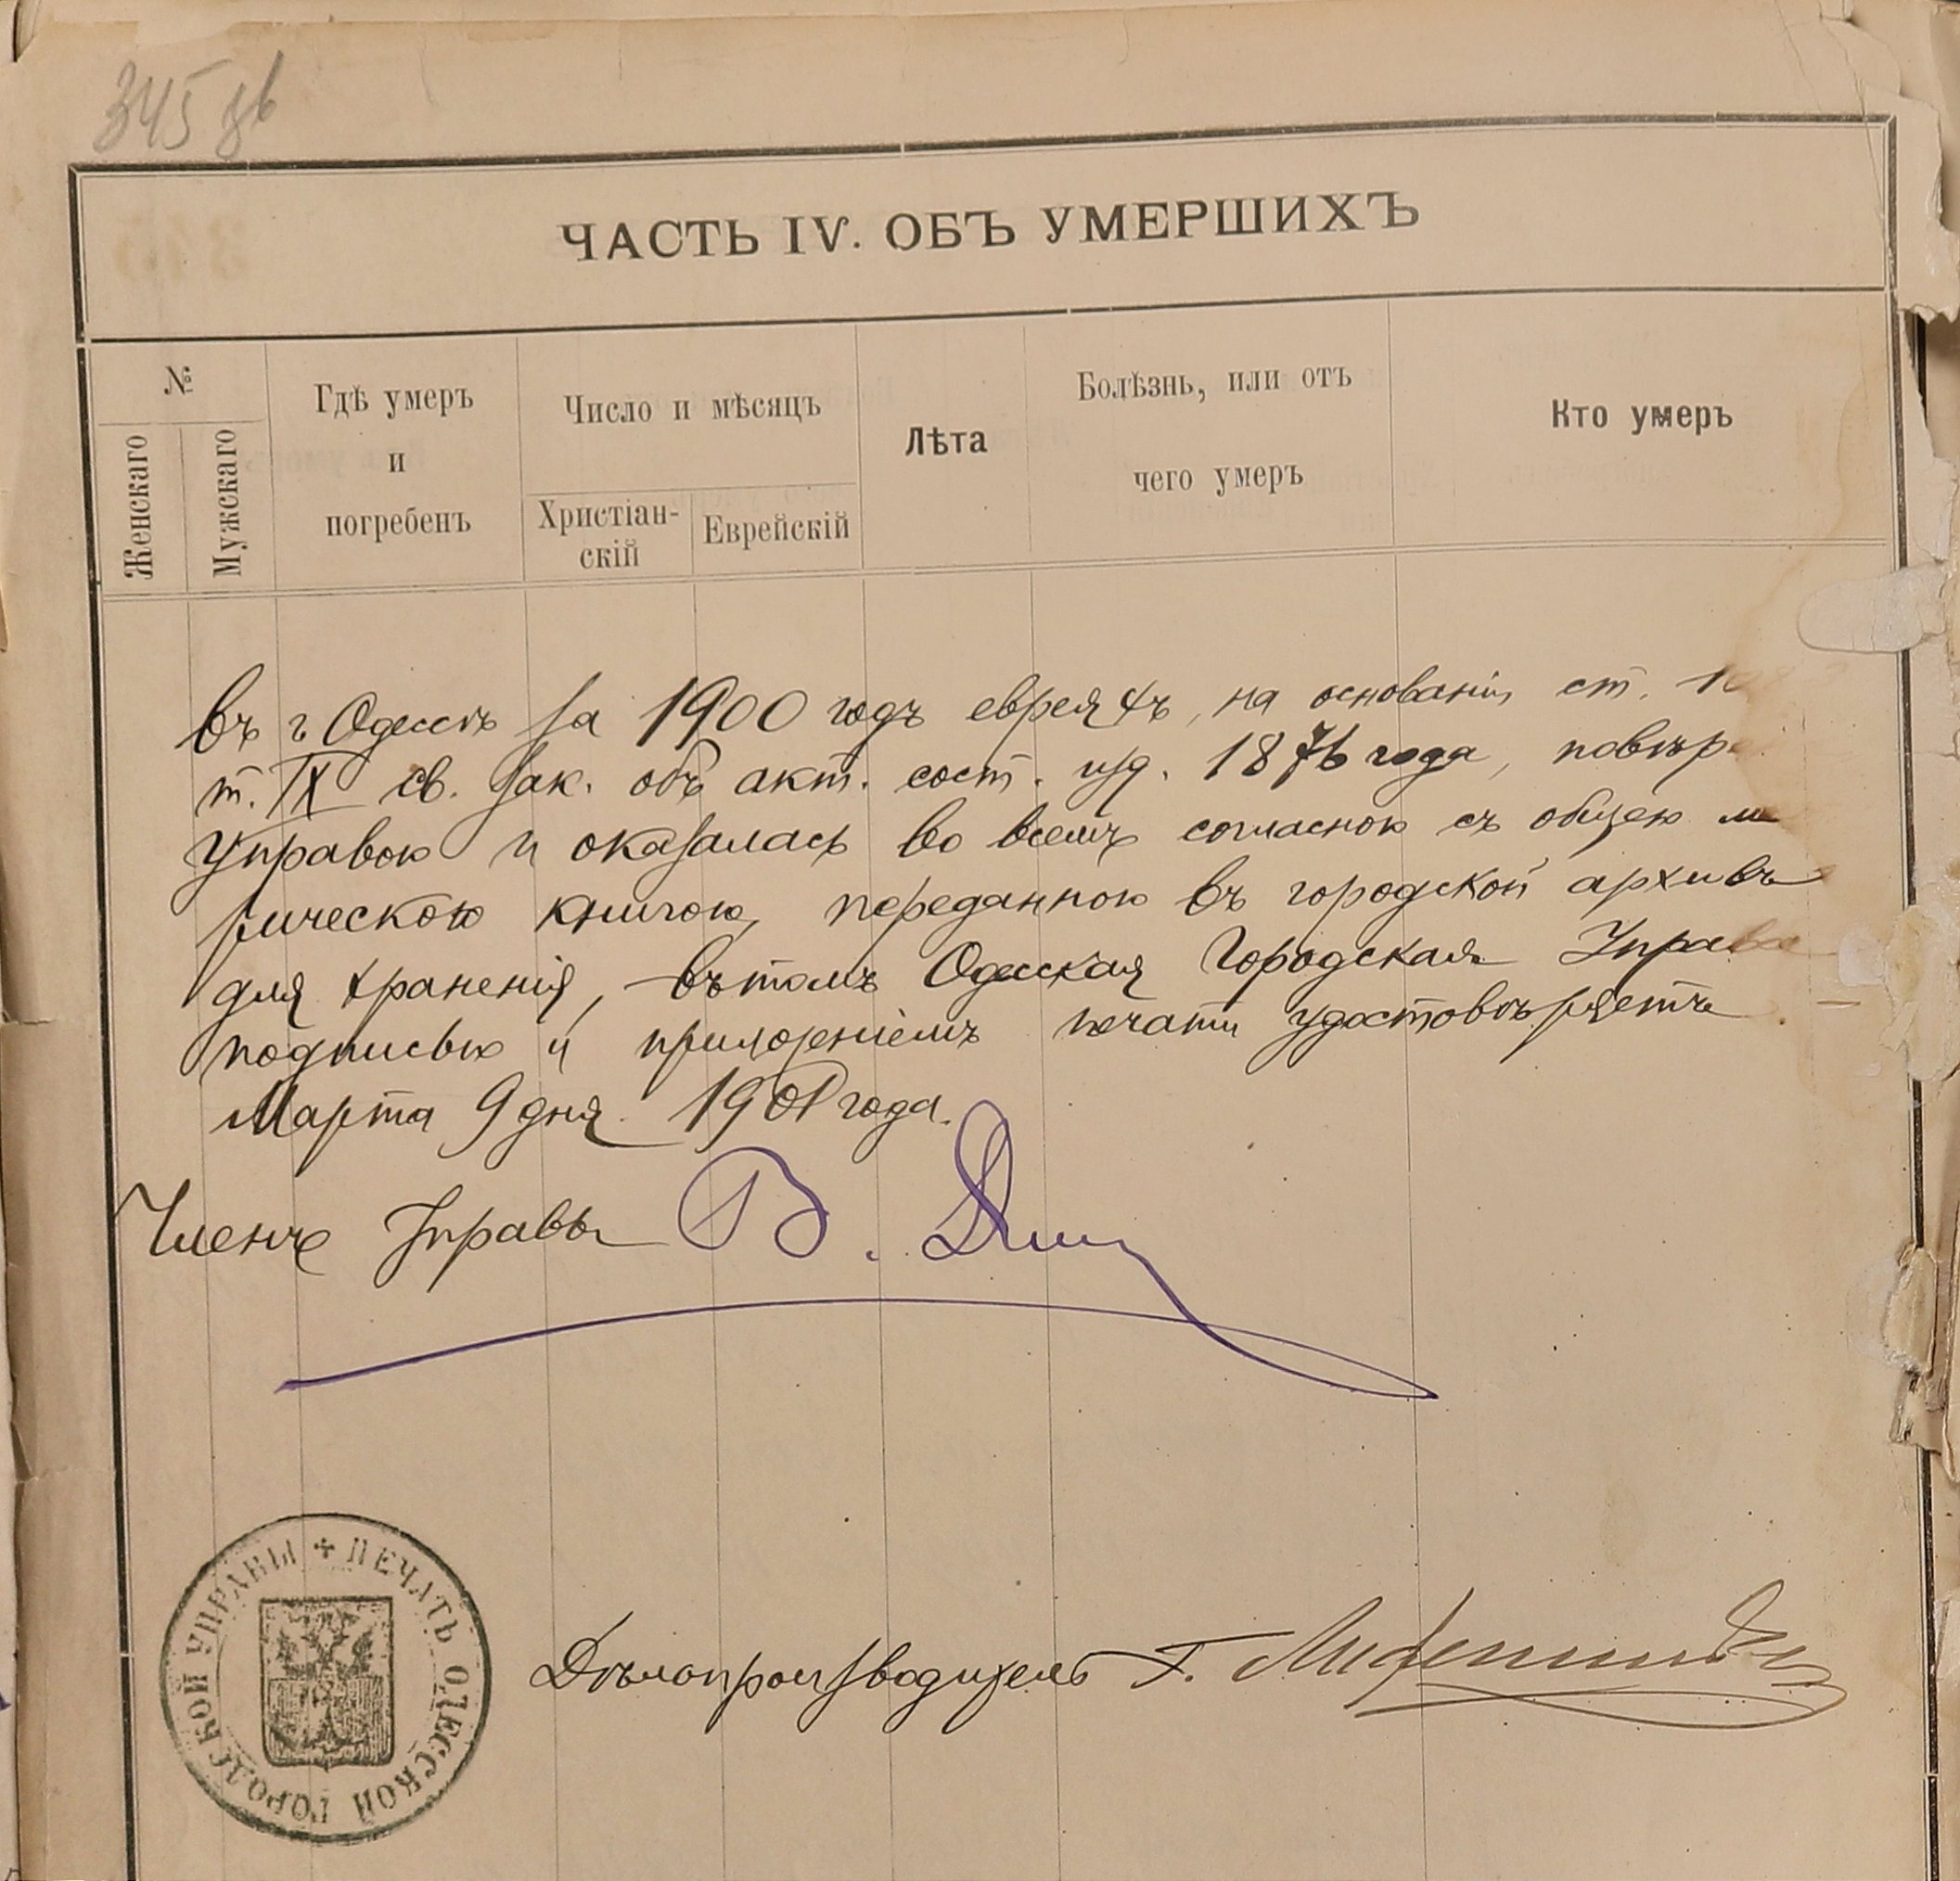 345 об
ЧАСТЬ IV. ОБЪ УМЕРШИХЪ
№
Женскаго
Мужскаго
Гдѣ умеръ
и
погребенъ
Число и мѣсяцъ
Христіан-
скій
Еврейскій
Лѣта
Болѣзнь, или отъ
чего умеръ
Кто умеръ
въ г. Одессѣ за 1900 годъ евреяхъ, на основаніи ст.
т. IX св. зак. объ акт. сост. изд. 1876 года, повѣре
Управою и оказалась во всемъ согласною съ общею м
рическою книгою, переданною въ городской архивъ
для храненія, – въ томъ Одесская Городская Управа
подписью и приложеніемъ печати удостовѣряетъ.
Марта 9 дня 1901 года.
Членъ Управы В.
ПЕЧАТЬ ОДЕССКОЙ ГОРОДСКОЙ УПРАВЫ
Дѣлопроизводитель Г.